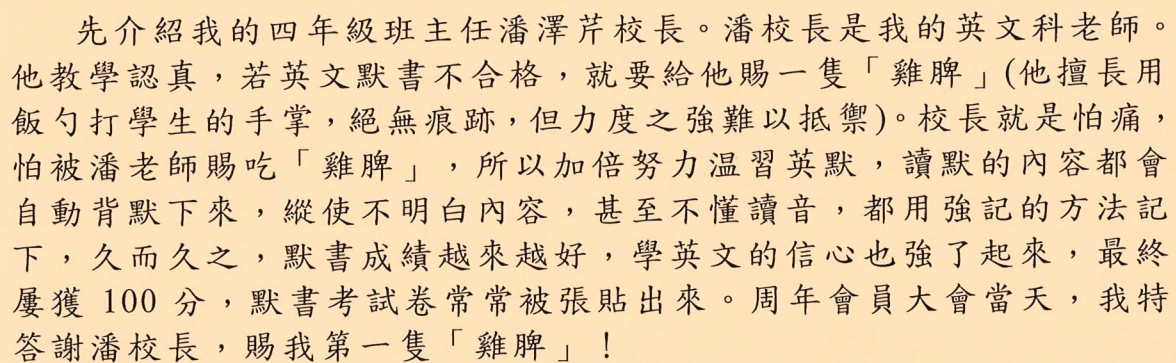 先介紹我的四年級班主任潘澤芹校長。潘校長是我的英文科老師。
他教學認真，若英文默書不合格，就要給他賜一隻「雞髀」(他擅長用
飯勺打學生的手掌，絕無痕跡，但力度之強難以抵禦)。校長就是怕痛，
怕被潘老師賜吃「雞髀」，所以加倍努力温習英默，讀默的內容都會
自動背默下來，縱使不明白內容，甚至不懂讀音，都用強記的方法記
下，久而久之，默書成績越來越好，學英文的信心也強了起來，最終
屢獲 100 分，默書考試卷常常被張貼出來。周年會員大會當天，我特
答謝潘校長，賜我第一隻「雞髀」！